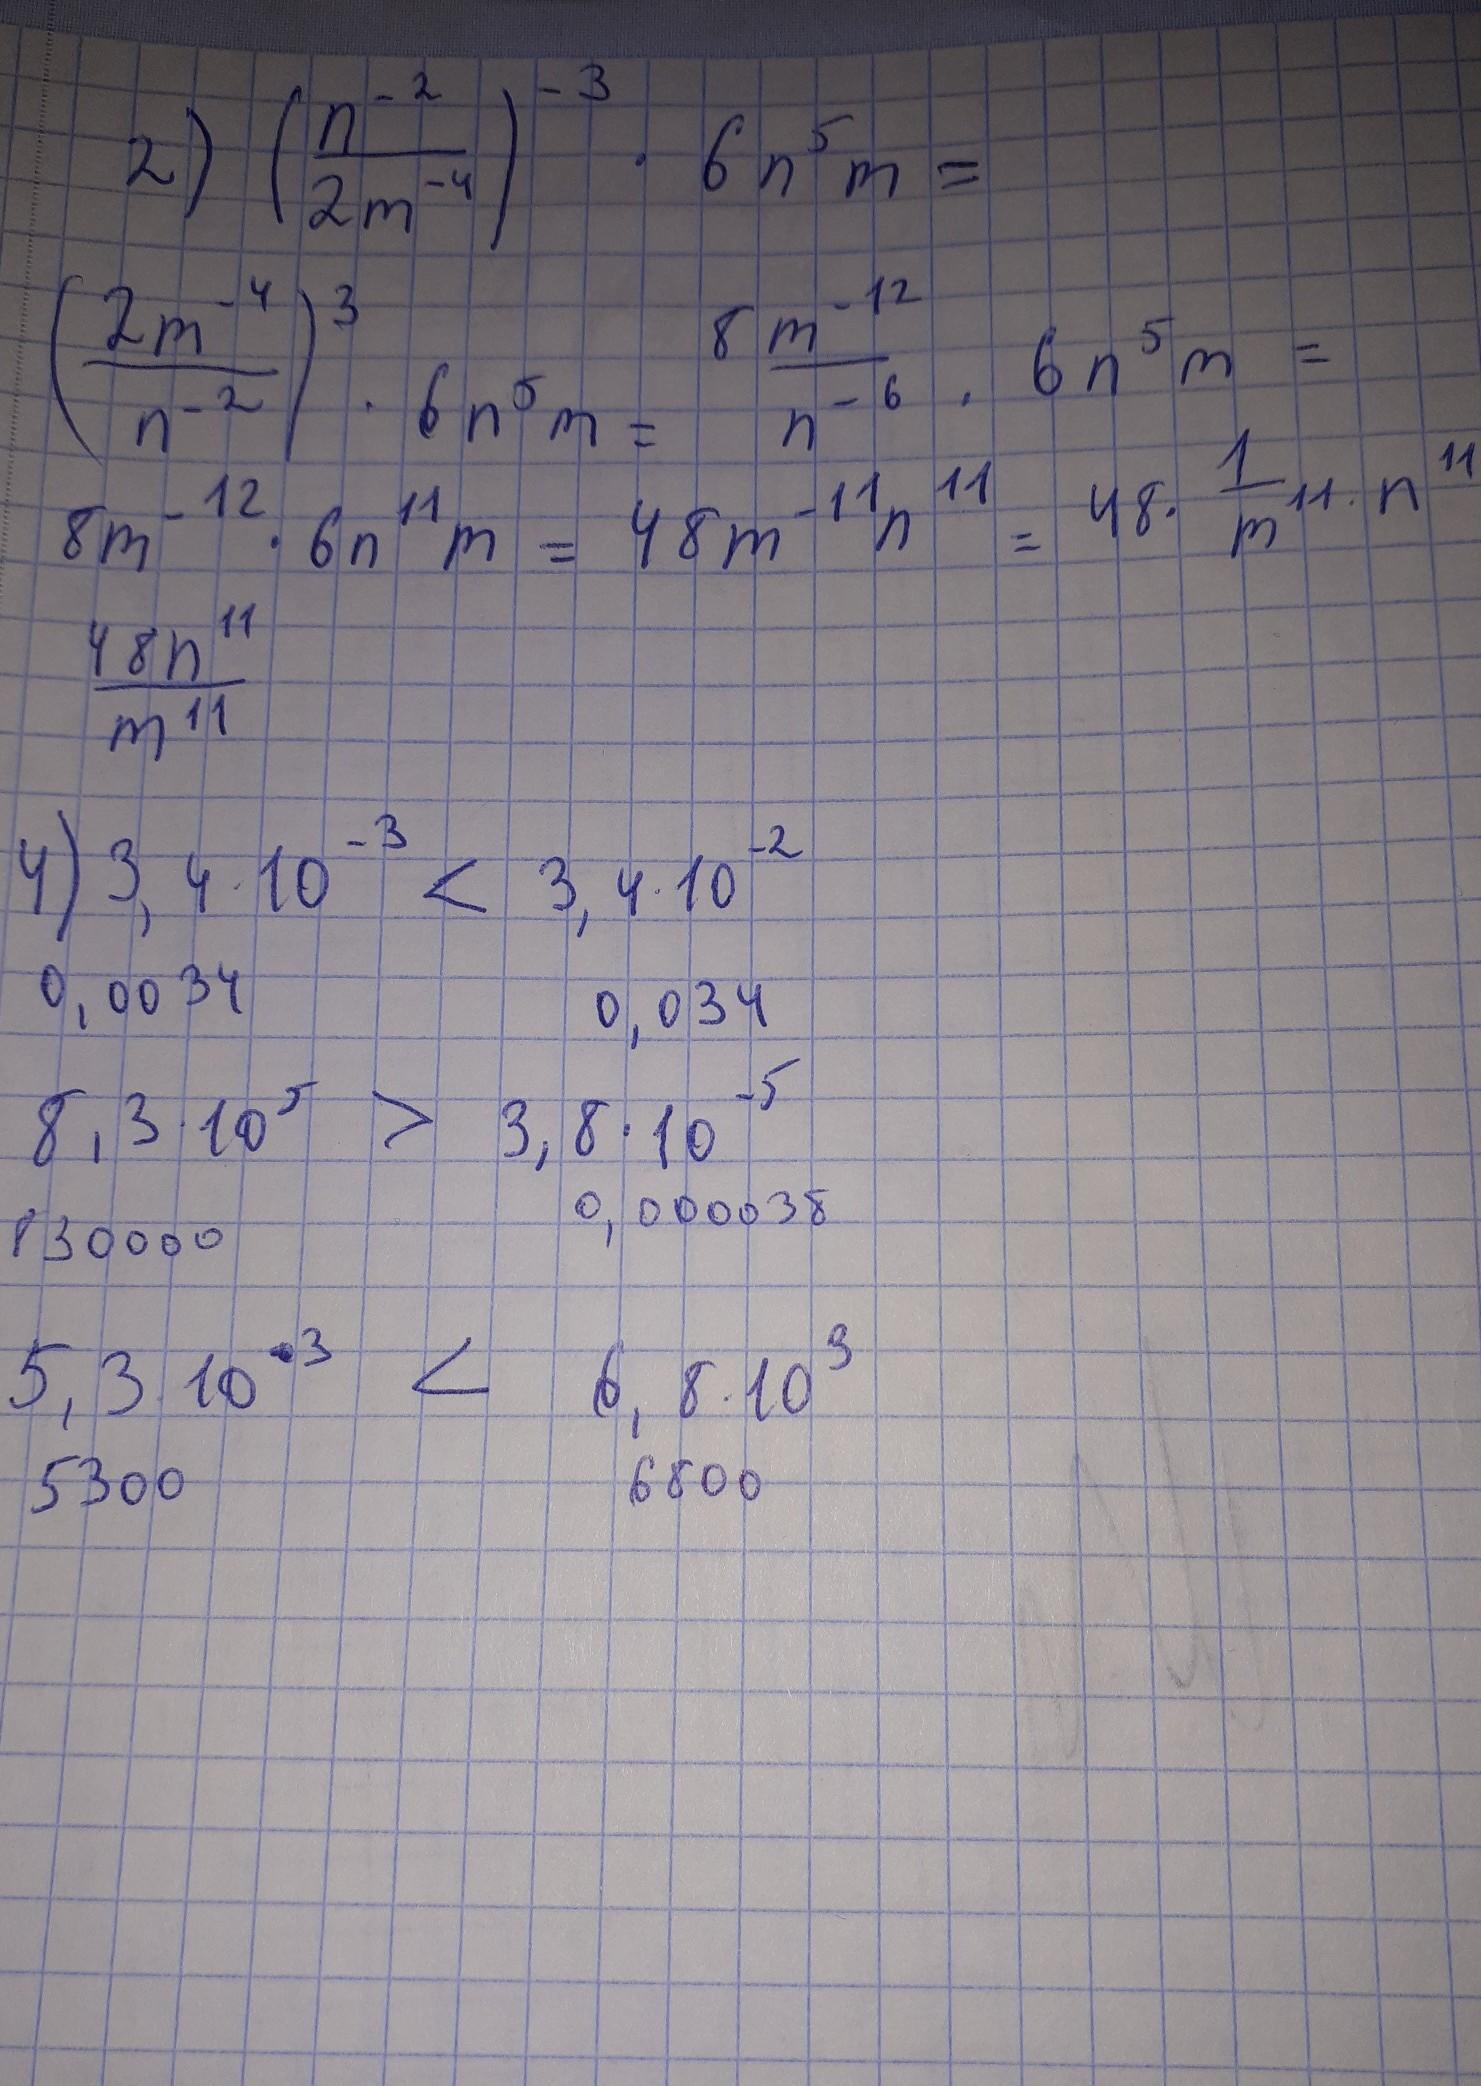 2) (n⁻²/2m⁻⁴)⁻³ · 6n⁵m =
(2m⁻⁴/n⁻²)³ · 6n⁵m = 8m⁻¹²/n⁻⁶ · 6n⁵m =
8m⁻¹² · 6n¹¹m = 48m⁻¹¹n¹¹ = 48 · 1/m¹¹ · n¹¹
48n¹¹/m¹¹
4) 3,4·10⁻³ < 3,4·10⁻²
0,0034 0,034
8,3·10⁵ > 3,8·10⁻⁵
830000 0,000038
5,3·10³ < 6,8·10³
5300 6800